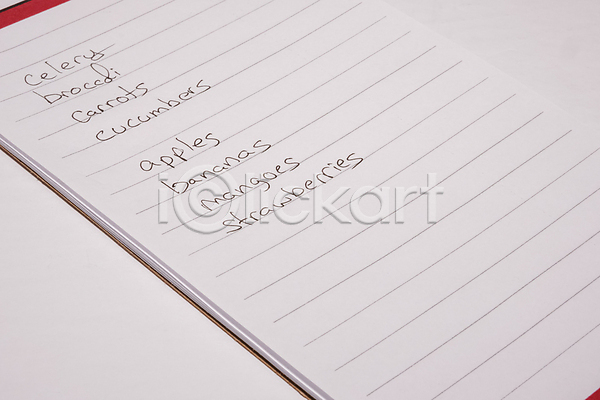 celery
broccoli
carrots
cucumbers
apples
bananas
mangoes
strawberries
iclickart